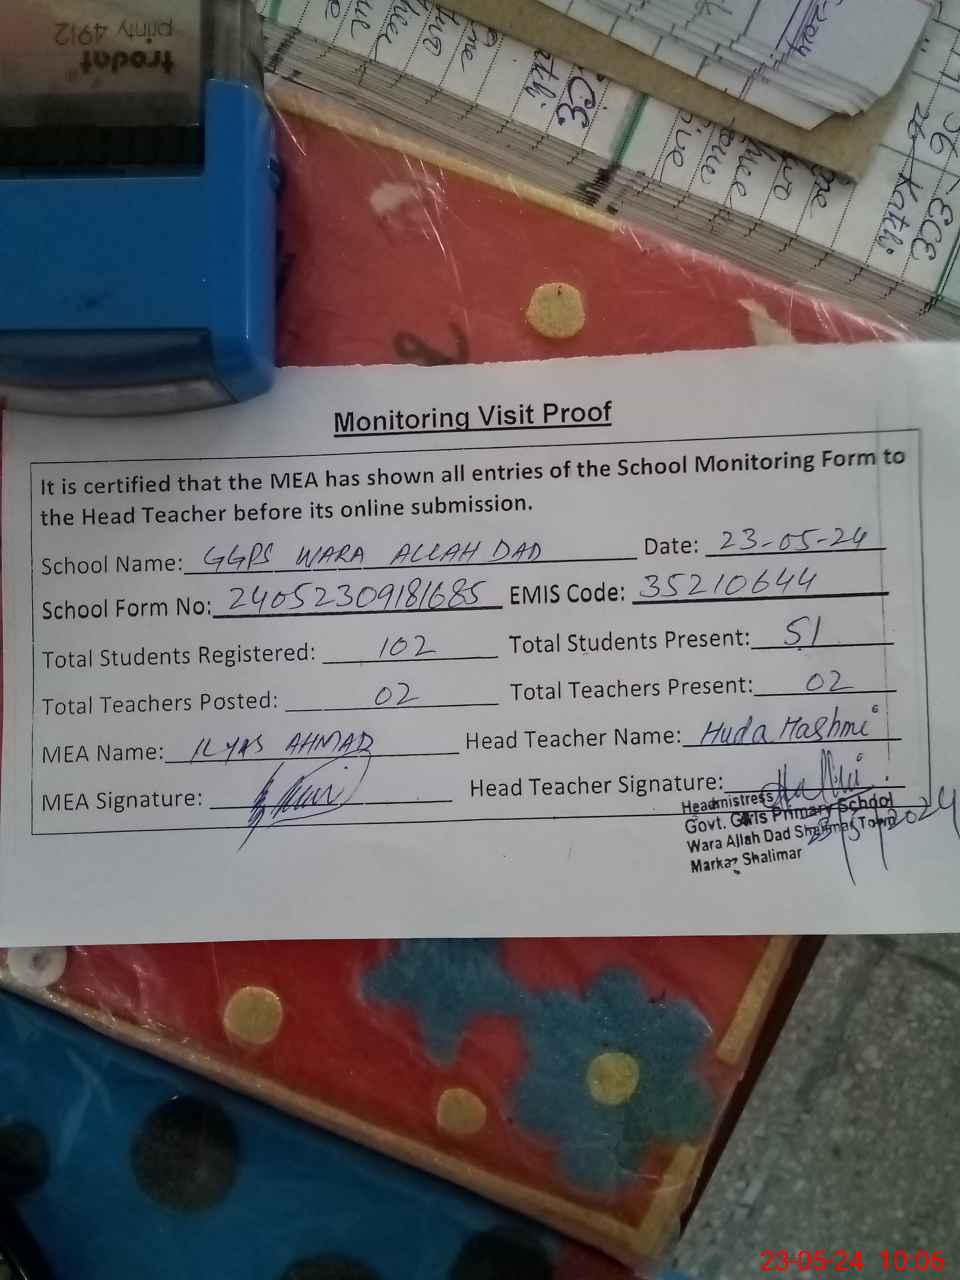 trodat
printy 4912
ECE
Katchi
Monitoring Visit Proof
It is certified that the MEA has shown all entries of the School Monitoring Form to
the Head Teacher before its online submission.
School Name: GGPS WARA ALLAH DAD Date: 23-05-24
School Form No: 24052309181685 EMIS Code: 35210644
Total Students Registered: 102 Total Students Present: 51
Total Teachers Posted: 02 Total Teachers Present: 02
MEA Name: ILYAS AHMAD Head Teacher Name: Huda Hashmi
MEA Signature: Head Teacher Signature:
Headmistress
Govt. Girls Primary School
Wara Allah Dad Shalimar Town
Markaz Shalimar
23/5/2024
23-05-24 10:06